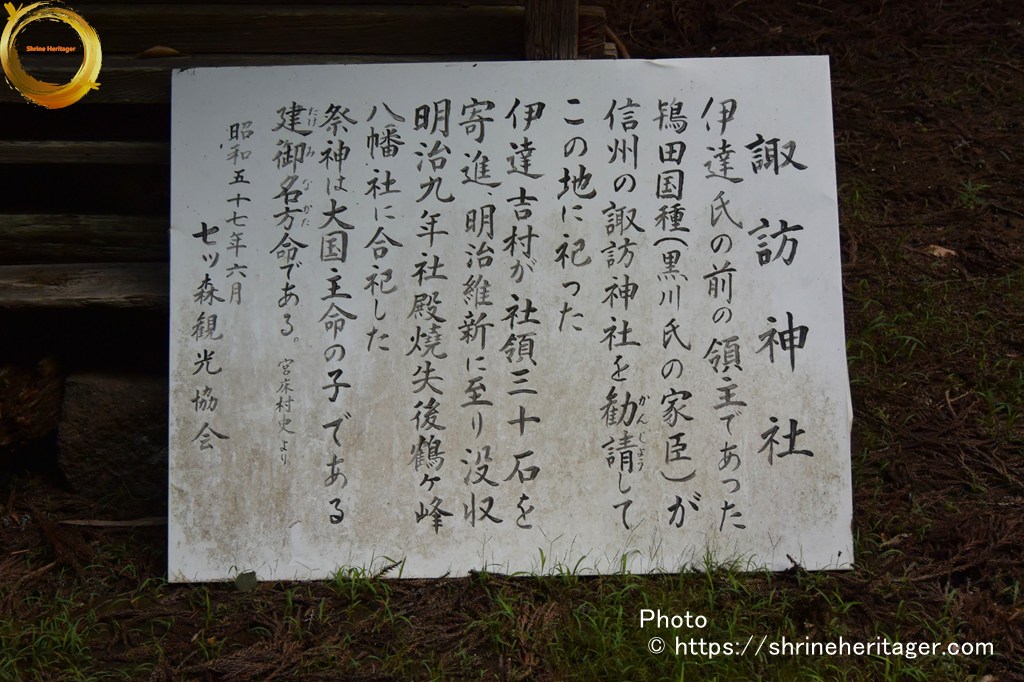 Shrine Heritager
諏訪神社
伊達氏の前の領主であった
鴇田国種(黒川氏の家臣)が
信州の諏訪神社を勧請して
かんじょう
この地に祀った
伊達吉村が社領三十石を
寄進明治維新に至り没収
明治九年社殿焼失後鶴ヶ峰
八幡社に合祀した
祭神は大国主命の子である
建御名方命である。
たけみなかた
宮床村史より
昭和五十七年六月
七ッ森観光協会
Photo
© https://shrineheritager.com/